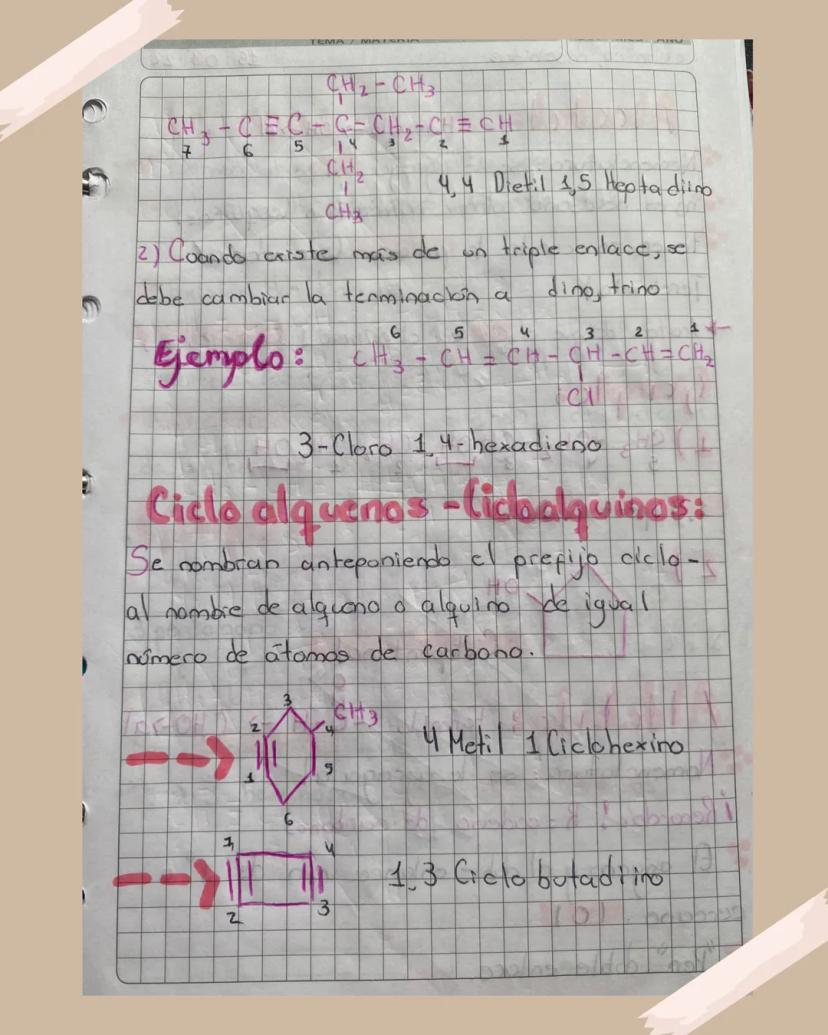 CH₂-CH₃
CH₃-C≡C-C-CH₂-C≡CH
7 6 5 4 3 2 1
CH₂
CH₃
4,4 Dietil 1,5 Heptadiino
2) Coando existe más de un triple enlace, se
debe cambiar la terminación a diino, triino
Ejemplo:
6 5 4 3 2 1
CH₃-CH=CH-CH-CH=CH₂
Cl
3-Cloro 1,4-hexadieno
Ciclo alquenos - Cicloalquinos:
Se nombran anteponiendo el prefijo ciclo-
al nombre de alqueno o alquino de igual
número de átomos de carbono.
3
2 4 CH₃
1 5
6
4 Metil 1 Ciclohexino
1 4
2 3
1,3 Ciclo botadiino